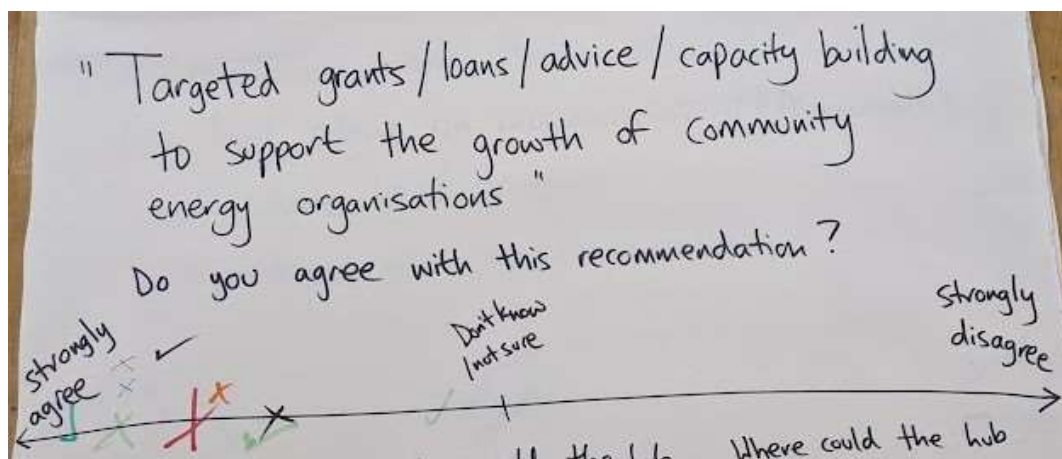 "Targeted grants/loans/advice/capacity building
to support the growth of community
energy organisations"
Do you agree with this recommendation?
strongly
agree
Don't know
/not sure
strongly
disagree
Where could the hub